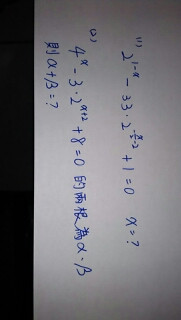 (1) 2^{1-x} - 33·2^{-\frac{x}{2}-2} + 1 = 0 x = ?
(2) 4^x - 3·2^{x+2} + 8 = 0 的兩根為 α、β
則 α+β = ?